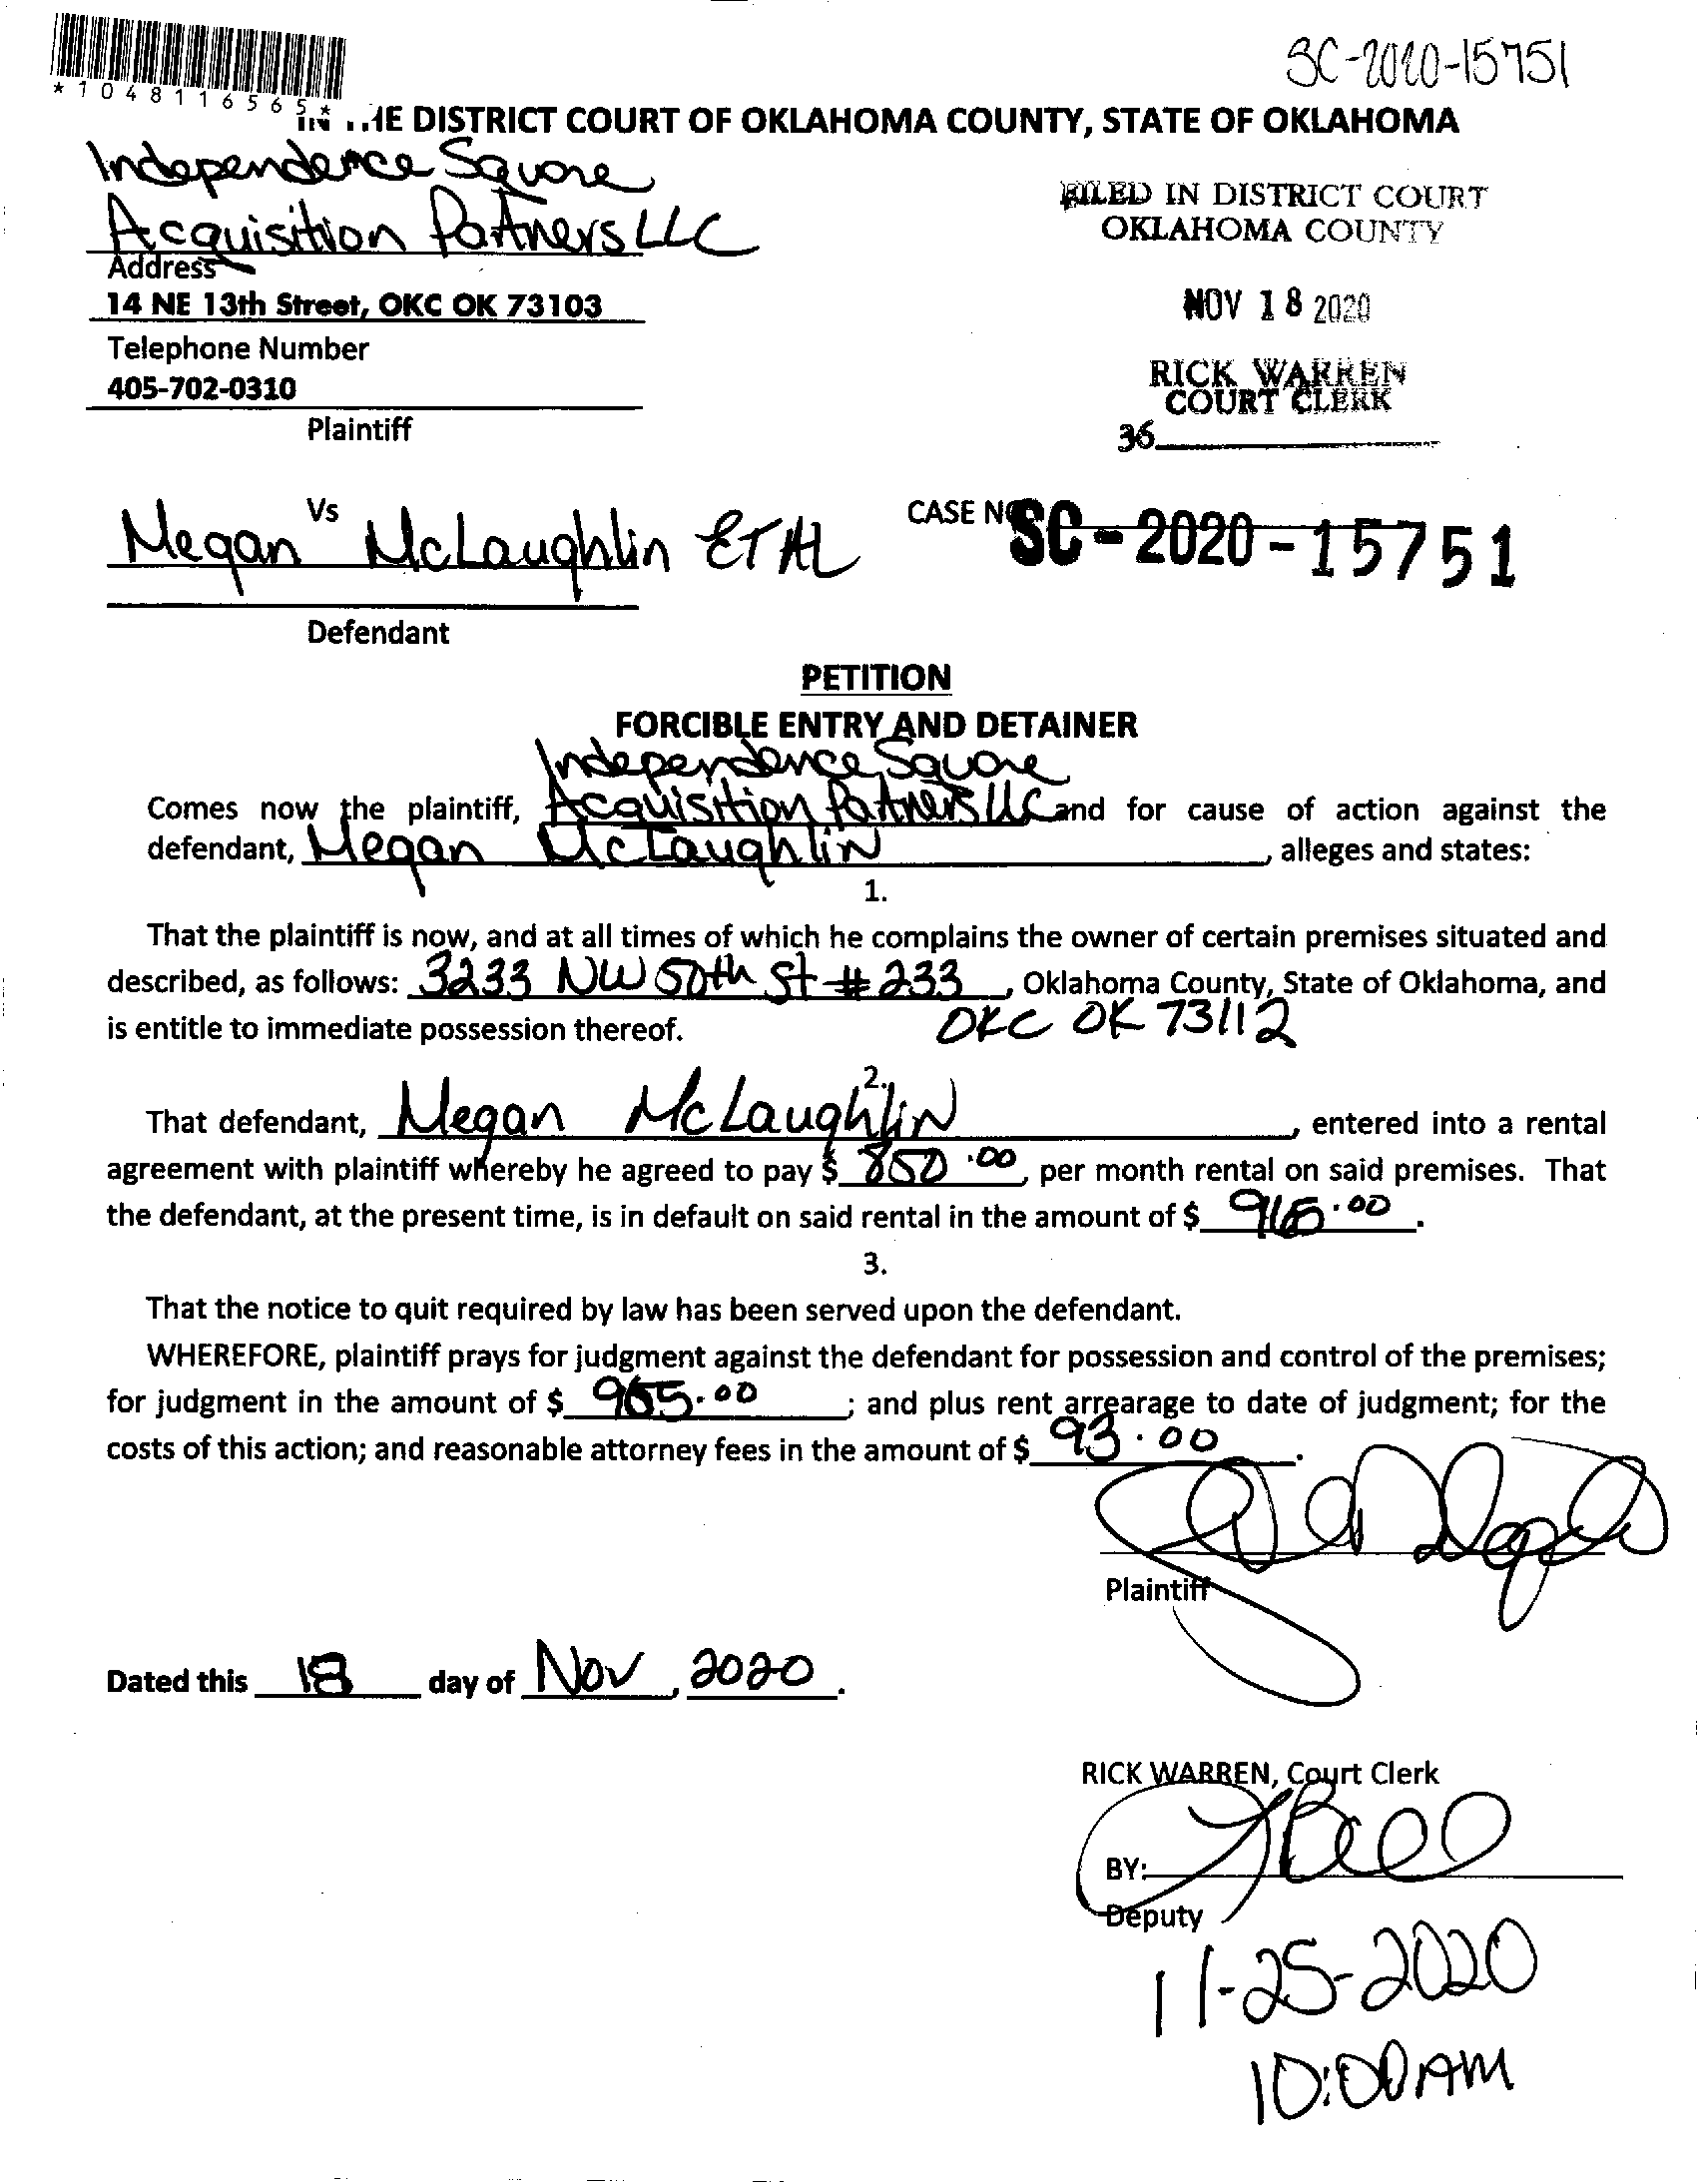 *1048116565*
SC-2020-15751
IN THE DISTRICT COURT OF OKLAHOMA COUNTY, STATE OF OKLAHOMA
Independence Square
Acquisition Partners LLC
Address
14 NE 13th Street, OKC OK 73103
Telephone Number
405-702-0310
Plaintiff
FILED IN DISTRICT COURT
OKLAHOMA COUNTY
NOV 18 2020
RICK WARREN
COURT CLERK
36
Vs
Megan McLaughlin ET AL
Defendant
CASE NO SC-2020-15751
PETITION
FORCIBLE ENTRY AND DETAINER
Independence Square
Comes now the plaintiff, Acquisition Partners LLC and for cause of action against the
defendant, Megan McLaughlin, alleges and states:
1.
That the plaintiff is now, and at all times of which he complains the owner of certain premises situated and
described, as follows: 3233 NW 50th St # 233, Oklahoma County, State of Oklahoma, and
is entitle to immediate possession thereof. OKC OK 73112
2.
That defendant, Megan McLaughlin, entered into a rental
agreement with plaintiff whereby he agreed to pay $ 850.00, per month rental on said premises. That
the defendant, at the present time, is in default on said rental in the amount of $ .
3.
That the notice to quit required by law has been served upon the defendant.
WHEREFORE, plaintiff prays for judgment against the defendant for possession and control of the premises;
for judgment in the amount of $ ; and plus rent arrearage to date of judgment; for the
costs of this action; and reasonable attorney fees in the amount of $ 93.00.
Plaintiff
Dated this 18 day of Nov, 2020.
RICK WARREN, Court Clerk
BY:
Deputy
11-25-2020
10:00AM